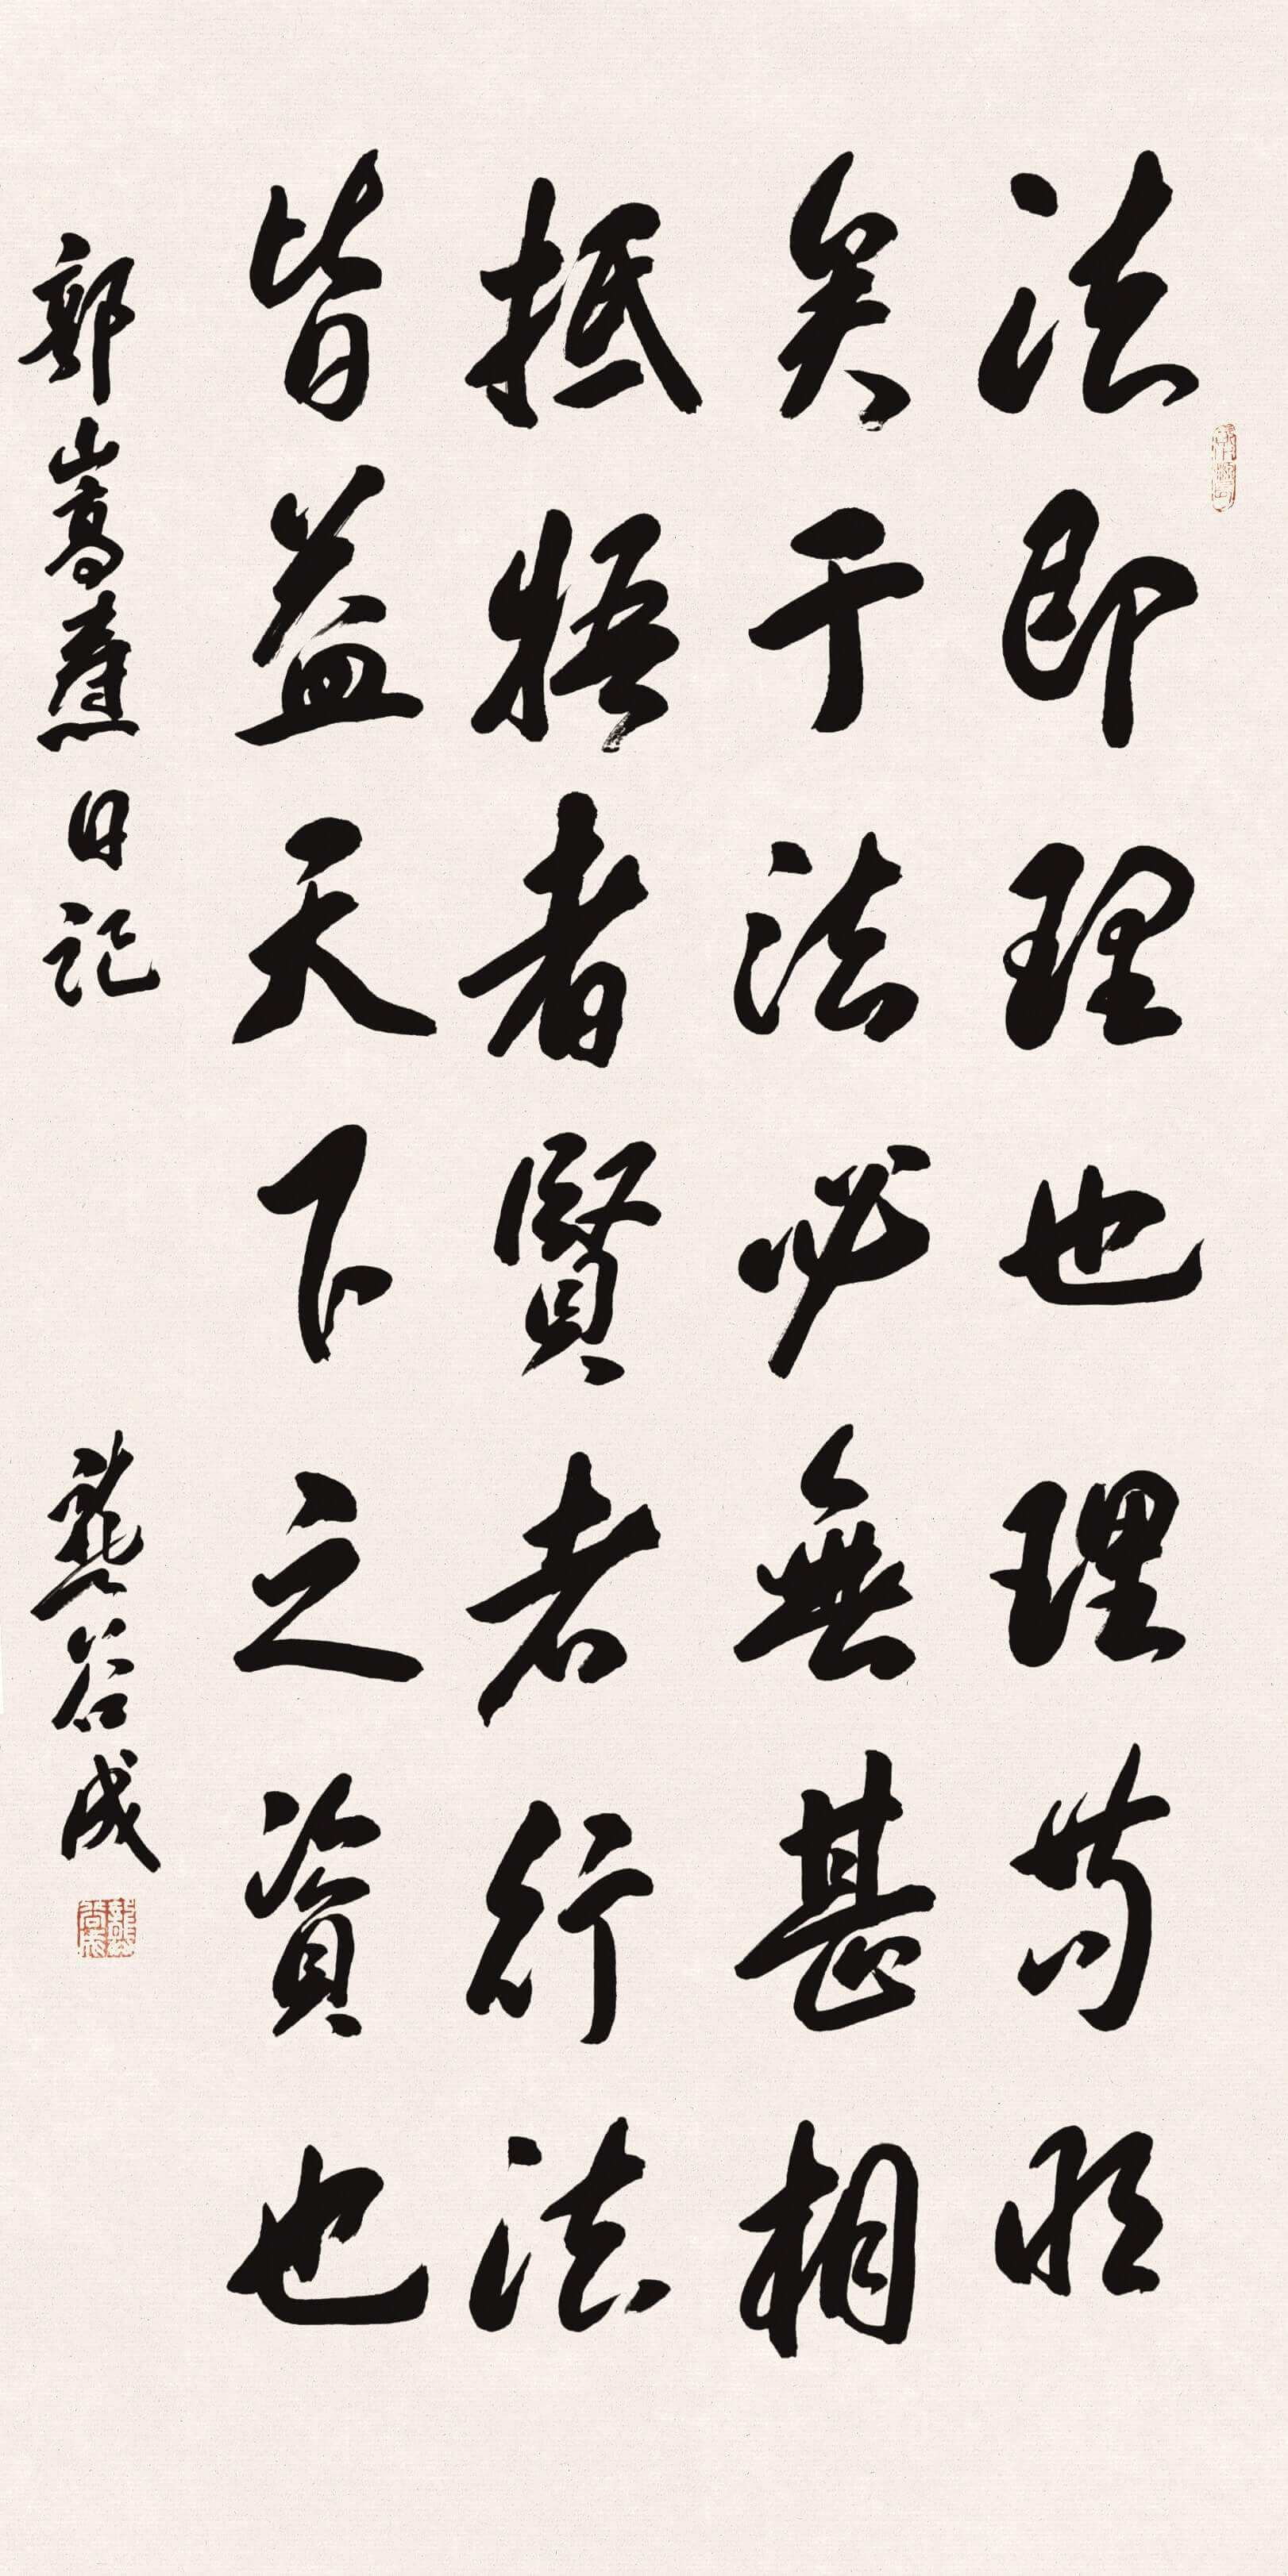 法即理也理苟明
矣于法必無甚相
抵牾者賢者行法
皆益天下之資也
郭嵩燾日記 龔谷成